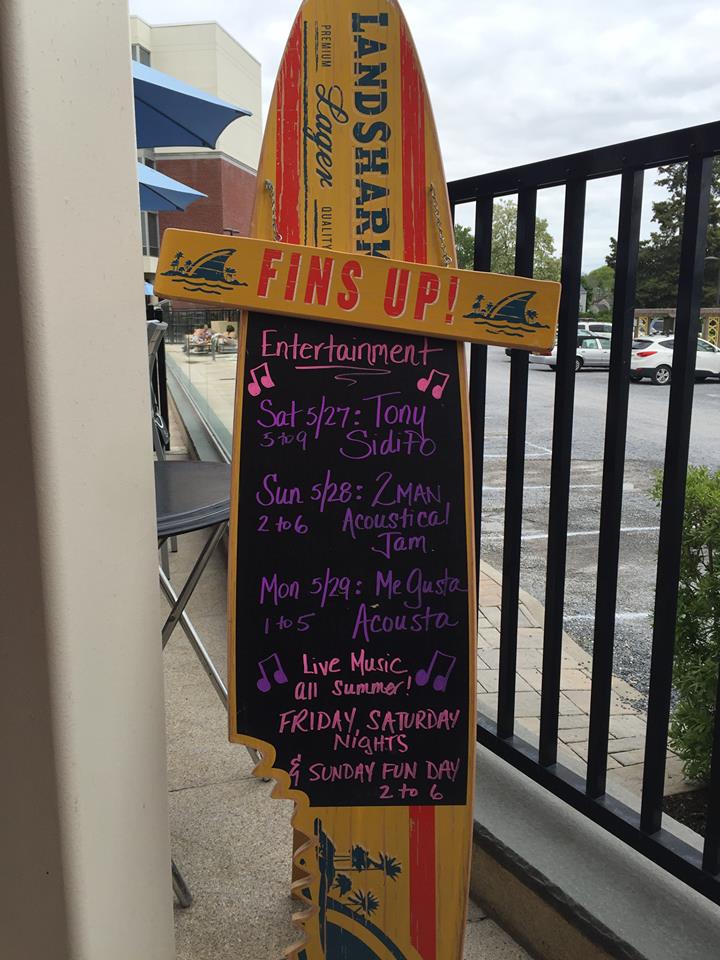 LANDSHARK
PREMIUM
Lager
QUALITY
FINS UP!
Entertainment
Sat 5/27: Tony
5 to 9 Sidito
Sun 5/28: 2 MAN
2 to 6 Acoustical
Jam.
Mon 5/29: Me Gusta
1 to 5 Acousta
Live Music
all summer!
FRIDAY, SATURDAY
NIGHTS
& SUNDAY FUN DAY
2 to 6